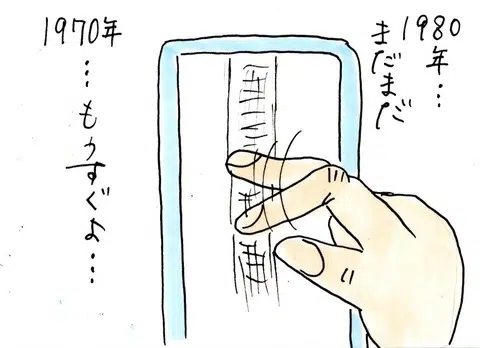 1980年…
まだまだ
1970年
…もうすぐよ…